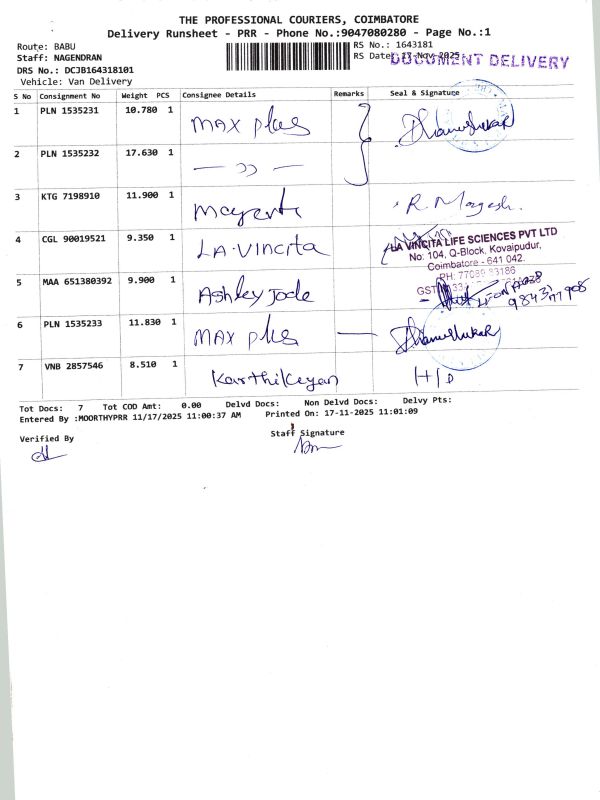 THE PROFESSIONAL COURIERS, COIMBATORE
Delivery Runsheet - PRR - Phone No.:9047080280 - Page No.:1
Route: BABU
RS No.: 1643181
Staff: NAGENDRAN
RS Date: 17-Nov-2025
DOCUMENT DELIVERY
DRS No.: DCJB164318101
Vehicle: Van Delivery
S No Consignment No Weight PCS Consignee Details Remarks Seal & Signature
1 PLN 1535231 10.780 1 MAX plus
2 PLN 1535232 17.630 1 — )) —
3 KTG 7198910 11.900 1 R. Magesh.
4 CGL 90019521 9.350 1 LA-Vincita
LA VINCITA LIFE SCIENCES PVT LTD
No: 104, Q-Block, Kovaipudur,
Coimbatore - 641 042.
PH: 77089 33186
GST
5 MAA 651380392 9.900 1 Ashley Jode
6 PLN 1535233 11.830 1 MAX plus —
7 VNB 2857546 8.510 1 Karthikeyan H/D
Tot Docs: 7 Tot COD Amt: 0.00 Delvd Docs: Non Delvd Docs: Delvy Pts:
Entered By :MOORTHYPRR 11/17/2025 11:00:37 AM Printed On: 17-11-2025 11:01:09
Verified By
Staff Signature